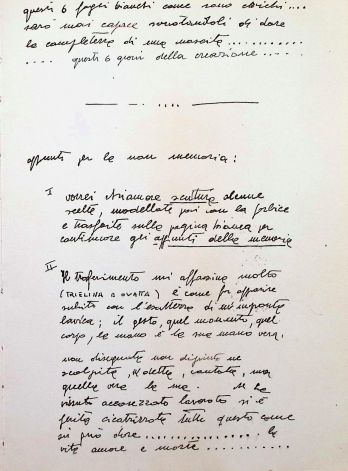 questi 6 fogli bianchi come sono carichi....
sarò mai capace sonetandoli di dare
la completezza di una nascita...........
.... questi 6 giorni della creazione.....
appunti per la non memoria:
I vorrei chiamare scultura alcune
scelte, modellate poi con la forbice
e trasferite sulla pagina bianca per
continuare gli appunti della memoria
II Il trasferimento mi affascina molto
(TRIELINA e OVATTA) è come far apparire
subito con l'esattezza di un'impronta
lavica; il gesto, quel momento, quel
corpo, la mano è la sua mano vera.
non disegnata non dipinta ne
scolpita, detta, cantata, ma
quella era la sua.
vissuto accarezzato lavorato si è
ferita cicatrizzata tutto questo come
si può dire............... la
vita amore e morte............